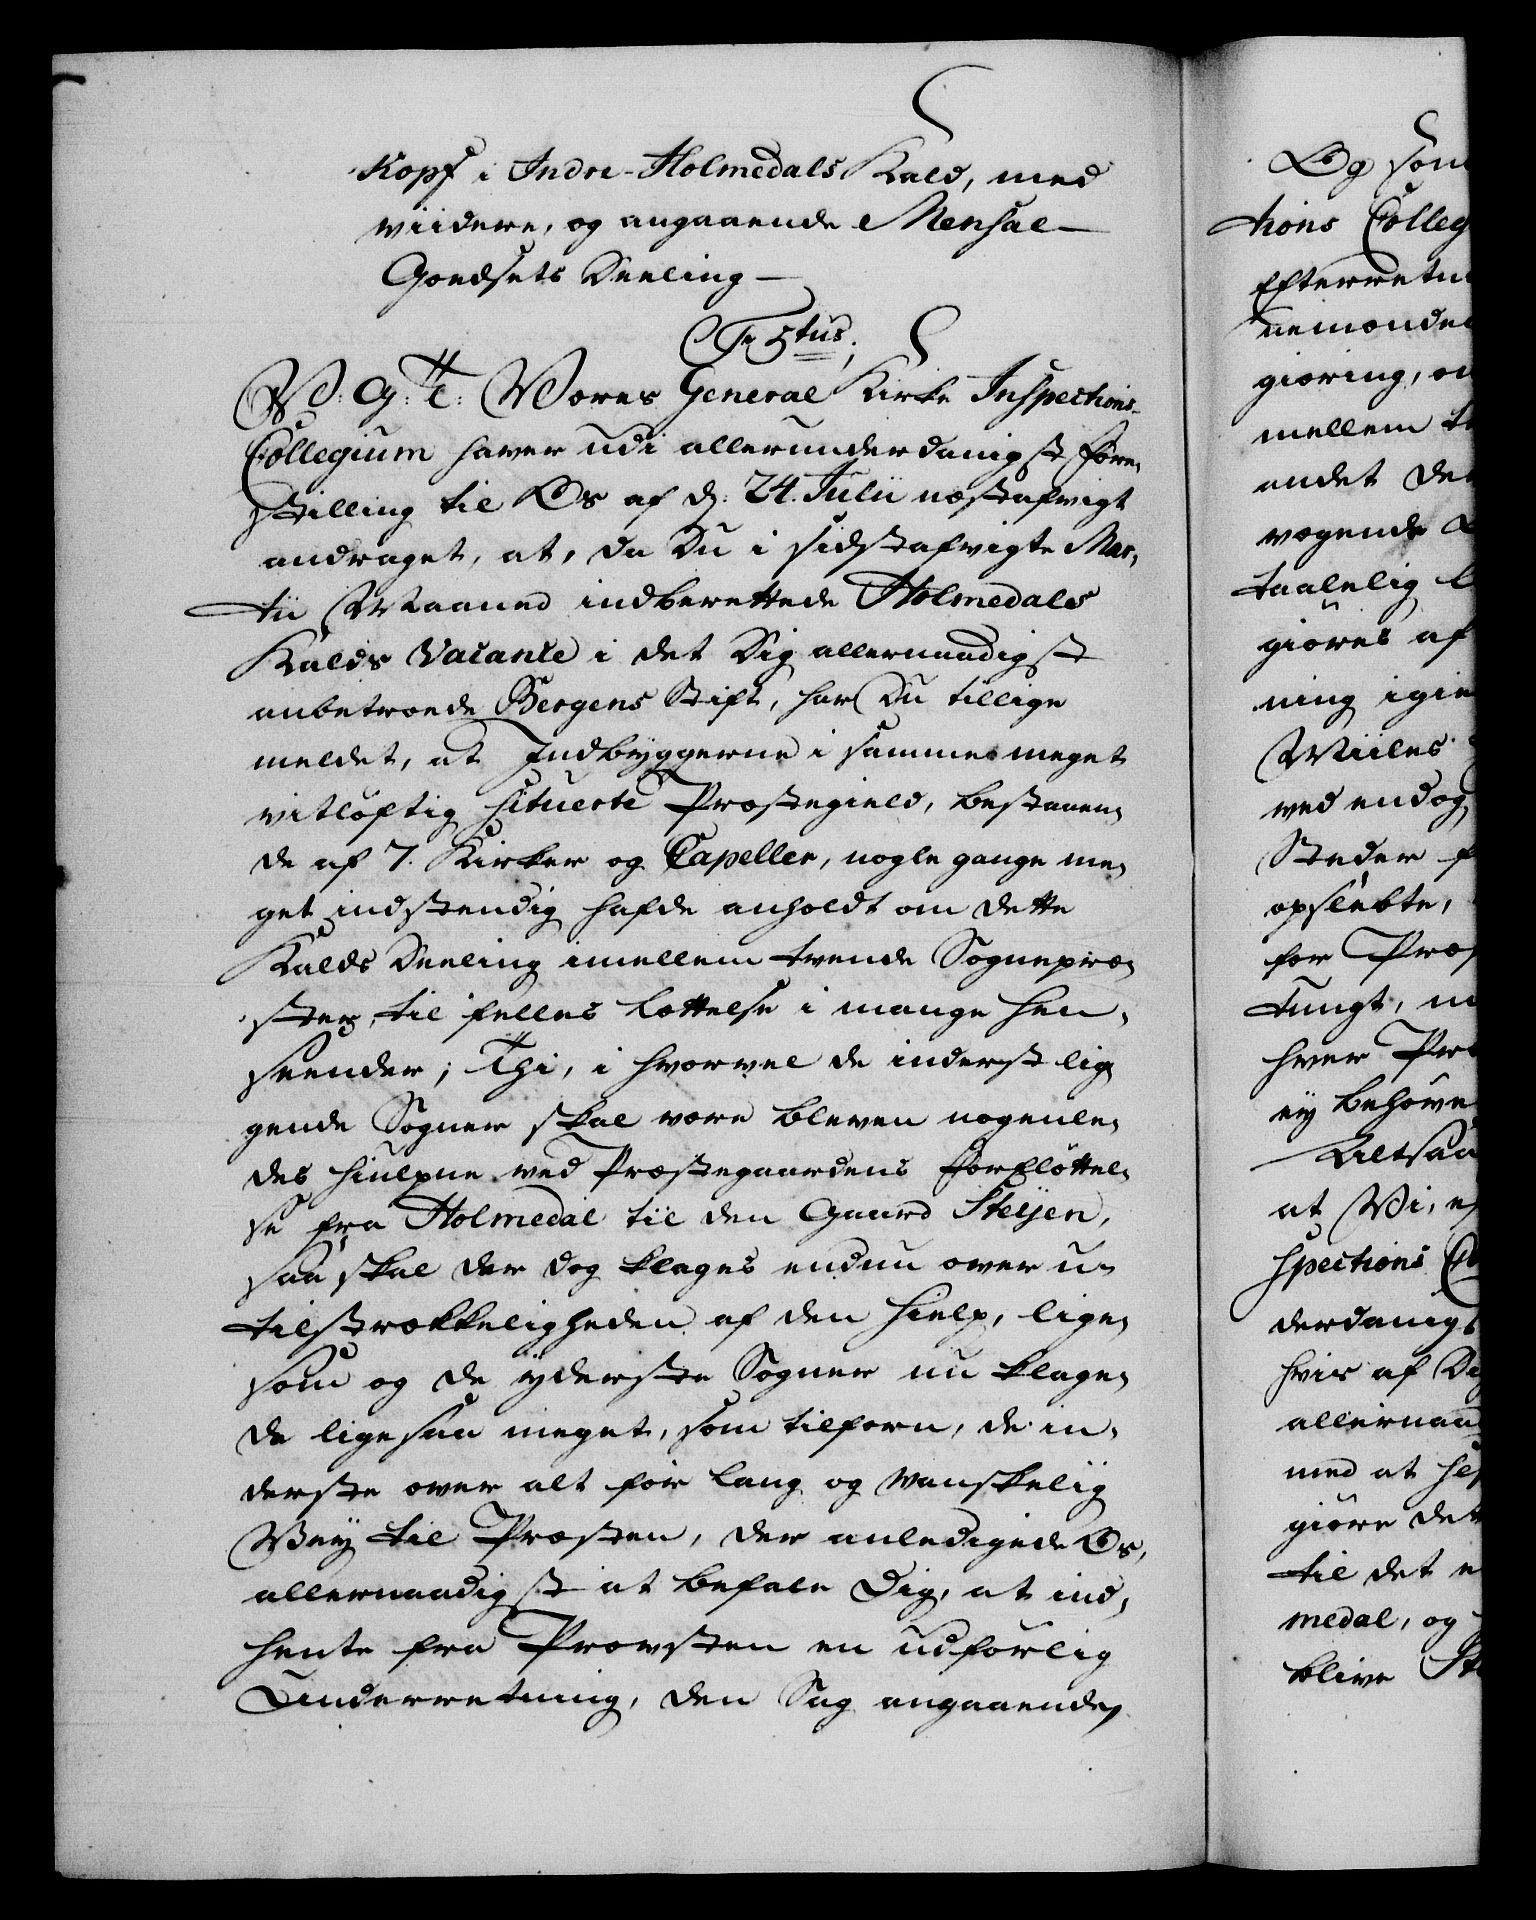 Kopf i Indre-Holmedals Kald, med
viidere, og angaaende Mensal-
Goedsets Deeling-
Chr. 5tus.
W. G. T. Vores General Kirke Inspections-
Collegium haver udi allerunderdanigst Fore-
stilling til Os af d. 24. Julii næstafvigt
andraget, at, da Du i sidstafvigte Mar-
tii Maaned indberettede Holmedals
Kalds Vacance i det Dig allernaadigst
anbetroede Bergens Stift, har Du tillige
meldet, at Indbyggerne i samme meget
vitløftig situerte Præstegield, bestaaen-
de af 7. Kirker og Capeller, nogle gange me-
get indstendig hafde anholdt om dette
Kalds Deeling imellem tvende Sognepræ-
ster, til felles Lættelse i mange Hen-
seender; Thi, i hvorvel de inderst lig-
gende Sogner skal være bleven nogenle-
des hiulpne ved Præstegaardens Forfløttel-
se fra Holmedal til den Gaard Steijen,
saa skal der dog klages endnu over u-
tilstrækkeligheden af den Hielp, lige-
som og de yderste Sogner nu klage-
de ligesaa meget, som tilforn, de in-
derste over alt for lang og vanskelig
Vey til Præsten, der anledigede Os,
allernaadigst at befale Dig, at ind-
hente fra Provsten en udførlig
Underretning, den Sag angaaende,
Og som
tions Colleg
Efterretn
nemonde
giøring, o
mellem t
andet De
vogende
taalelig l
giøres af
ning igie
Miiles
ved endog
Steder f
opslebte,
for Præs
tungt, m
hver Præ
ey behøve
Altsaa
at Vi, ef
spections Co
derdanigs
hvis af Di
allernaad
med at Hes
giøre det
til det e
medal, og
blive St